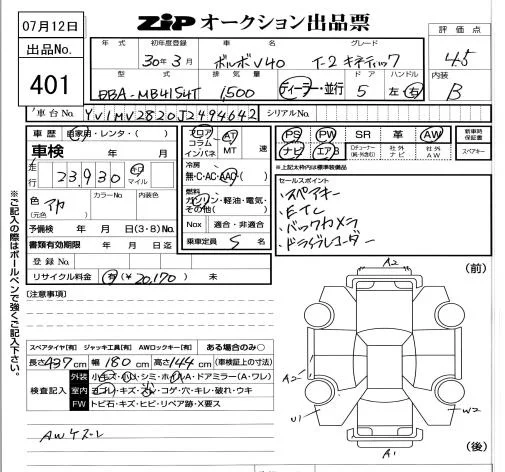 07月12日
ZiP オークション出品票
出品No.
401
年式 初年度登録 車名 グレード
30年3月 ボルボV40 T-2 キネティック
型式 排気量 ドア ハンドル
DBA-MB4154T 1,500 ディーラー・並行 5 左 右
評価点
4.5
内装
B
車台No. YV1MV2820J2494642 シリアルNo.
車歴 自家用・レンタ・( )
車検 年 月
走行 23,930 キロ マイル
色 アカ (元色) カラーNo. 内装色
予備検 年 月 日(3・8)No.
書類有効期限 年 月 日迄
登録No.
リサイクル料金 有(¥20,170) 未
フロア コラム インパネ AT MT 速
冷房
無・C・AC・AAC
燃料
ガソリン・軽油・電気・その他( )
Nox 適合・非適合
乗車定員 5 名
PS PW SR 革 AW
ナビ エアB Dチューナー(純・外含む) 社外ナビ 社外AW
新車時保証書
スペアキー
*上記太枠内は標準装備品
セールスポイント
スペアキー
ETC
バックカメラ
ドライブレコーダー
※ご記入の際はボールペンで強くご記入下さい。
[注意事項]
スペアタイヤ[有] ジャッキ工具[有] AWロックキー[有] ある場合のみ○
長さ437cm 幅180cm 高さ144cm (車検証上の寸法)
検査記入
外装 小キズ・小凹・シミ・ホイルA・ドアミラー(A・ワレ)
室内 ヨゴレ・キズ・スレ・コゲ・穴・キレ・破れ・ウキ
FW トビ石・キズ・ヒビ・リペア跡・X要ス
AWケズレ
A2
(前)
A2
U1
W2
A1
(後)